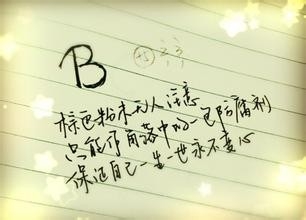 B
棕色粉末无人注意
只能作角落中的一包防腐剂
保证自己一生一世永不变心